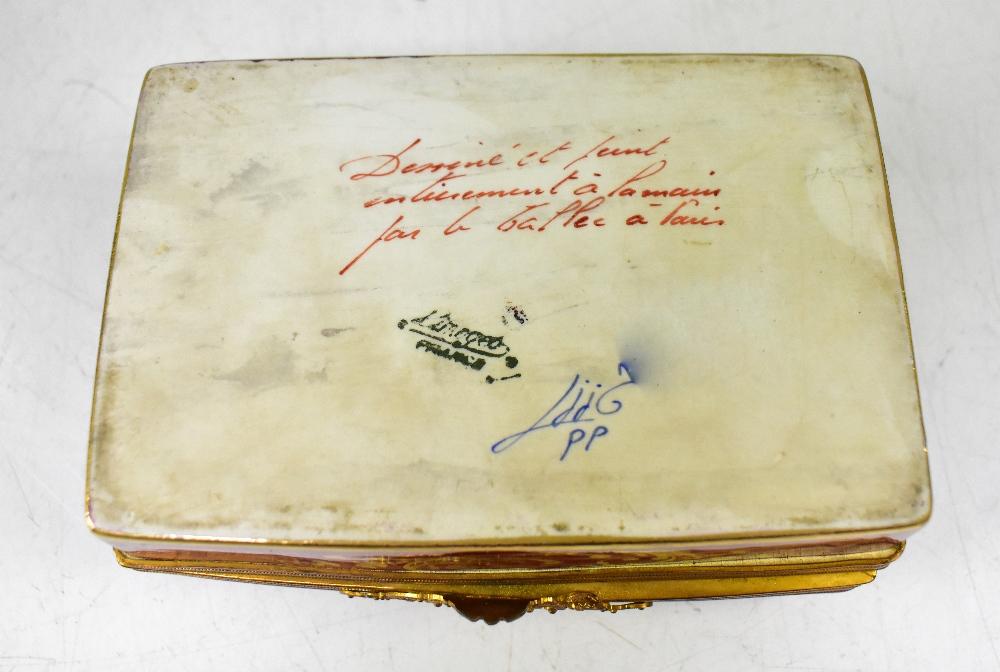 Dessiné et peint
entièrement à la main
par le Tallec à Paris
Limoges
FRANCE
PP